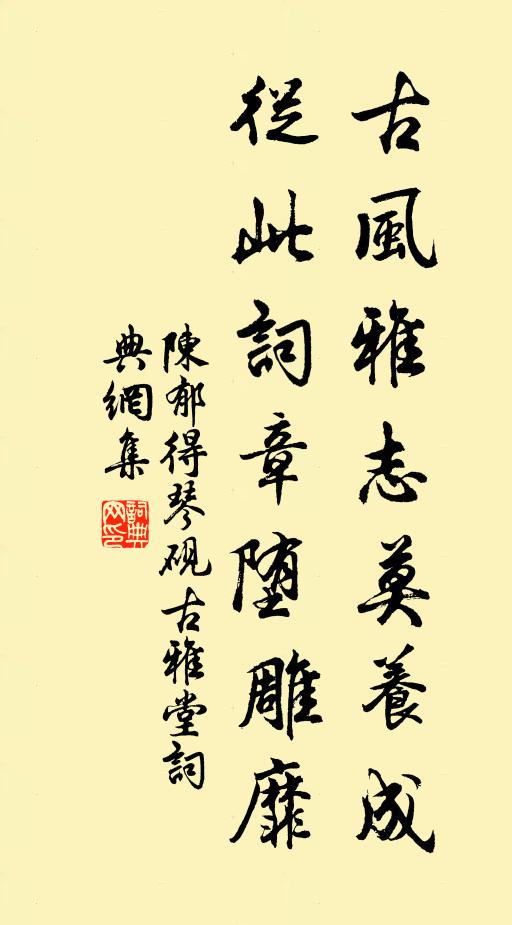 古風雅志莫養成
從此詞章墮雕靡
陳郁得琴硯古雅堂詞
典網集
詞典网印